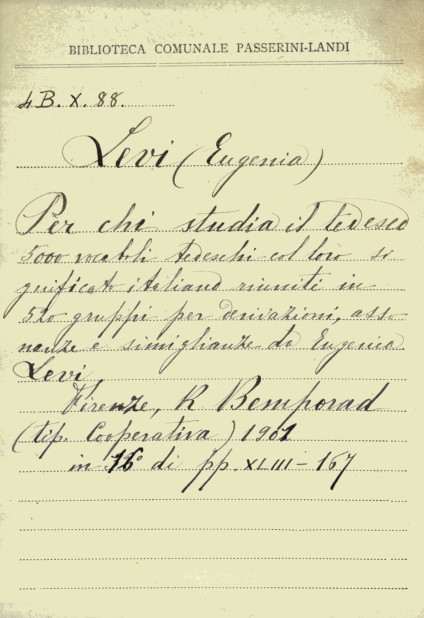 BIBLIOTECA COMUNALE PASSERINI-LANDI
4B. X. 88.
Levi (Eugenia)
Per chi studia il tedesco
5000 vocaboli tedeschi col loro si
gnificato italiano riuniti in
520 gruppi per derivazioni, asso
nanze e simiglianze da Eugenia
Levi
Firenze, R Bemporad
(tip. Cooperativa) 1901
in 16° di pp. XLIII-167